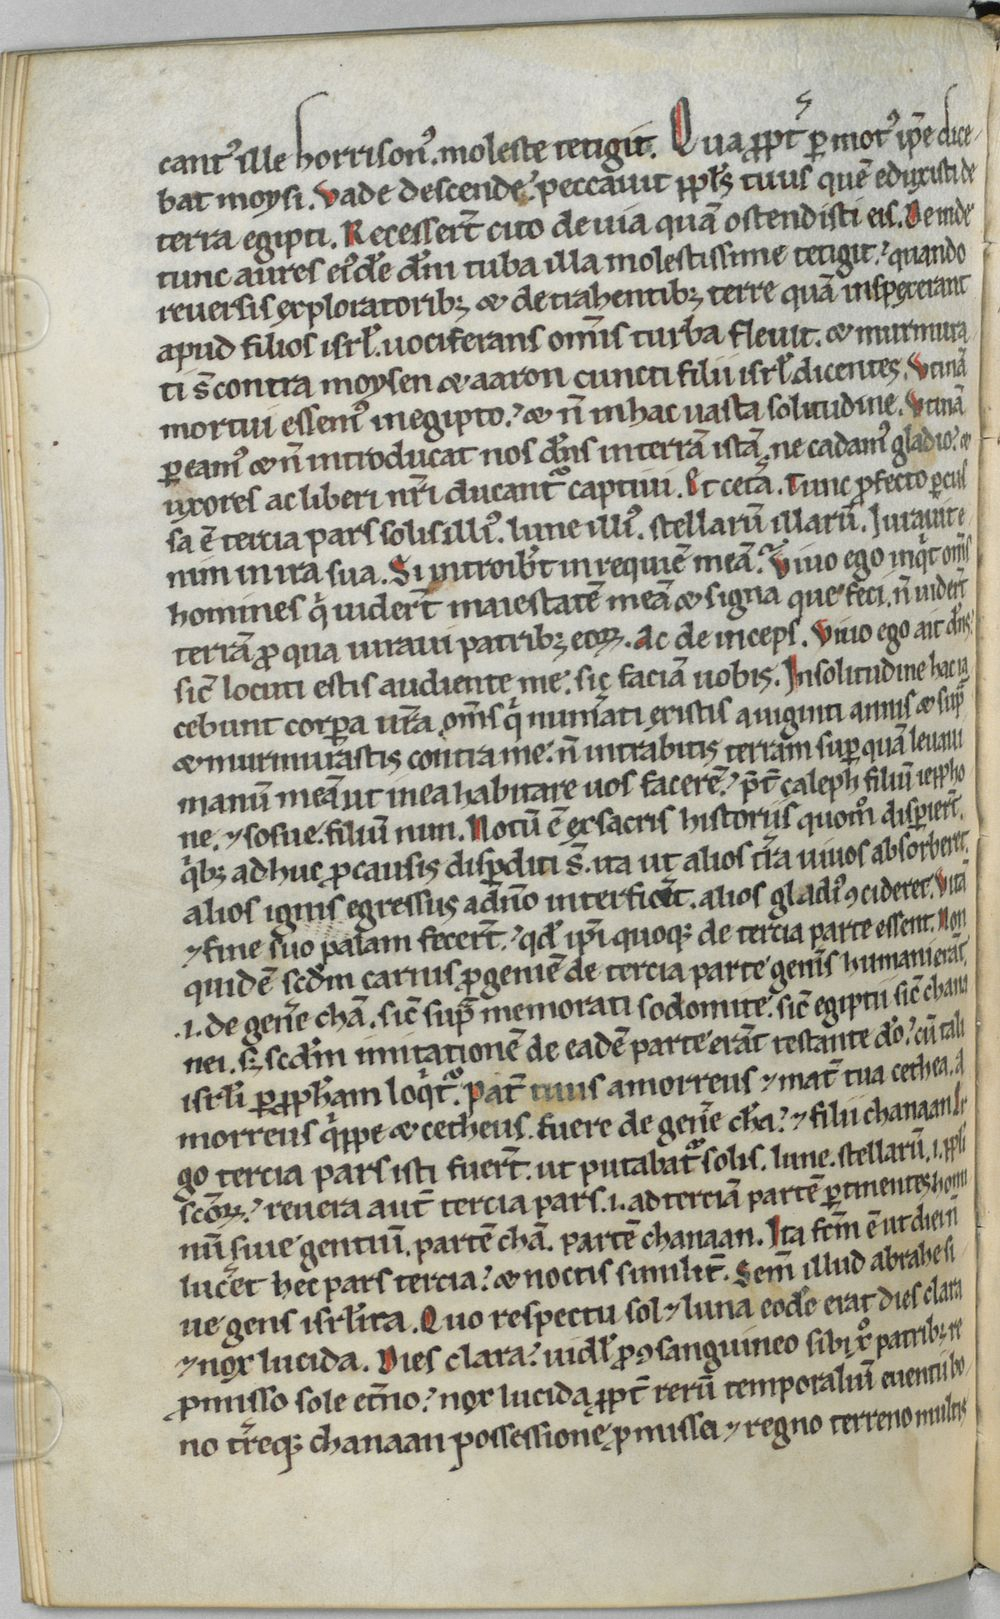 cantꝰ ille horrisonꝰ. moleste tetigit. Qua ꝓpt̄ ꝑmotꝰ ip̄e dice
bat moysi. Vade descende. peccauit ppl̄s tuus quē eduxisti de
terra egipti. Recesser̄t cito de uia quā ostendisti eis. Deinde
tunc aures eiꝰdē dn̄i tuba illa molestissime tetigit. quando
reuersis exploratoribꝫ ⁊ detrahentibꝫ terre quā inspexerant
apud filios isrl̄. uociferans om̄is turba fleuit. ⁊ murmura
ti s̄ contra moysen ⁊ aaron cuncti filii isrl̄ dicentes. Vtinā
mortui essemꝰ in egipto. ⁊ n̄ in hac uasta solitudine. Vtinā
ꝑeamꝰ ⁊ n̄ introducat nos dn̄s in terrā istā. ne cadamꝰ gladio. ⁊
uxores ac liberi nr̄i ducant᷑ captiui. Et cet̄a. Tunc ꝓfecto ꝑcus
sa ē tercia pars solis illiꝰ. lune illiꝰ. stellarū illarū. Iurauit e
nim in ira sua. Si introibt̄ in requiē meā. Viuo ego inqͥt om̄s
homines qͥ uider̄t maiestatē meā ⁊ signa que feci. n̄ uideb̄t
terrā ꝓ qua iuraui patribꝫ eoꝝ. Ac deinceps. Viuo ego ait dn̄s.
sic̄ locuti estis audiente me. sic faciā uobis. In solitudine hac ia
cebunt corꝑa ur̄a. om̄s qͥ num̄ati estis a uiginti annis ⁊ sup̄
⁊ murmurastis contra me. n̄ intrabitis terram super quā leuaui
manū meā ut in ea habitare uos facerē. p̄t caleph filiū ieppho
ne. ⁊ iosue. filiū nun. Notū ē ex sacris historiis quom̊ disꝑier̄t.
qͥbꝫ adhuc ꝓ causis disꝑditi s̄. ita ut alios tr̄a uiuos absorberet.
alios ignis egressus a dn̄o interficēt. alios gladiꝰ ꝯcideret. Vitā
⁊ fine suo palam fecer̄t. qd̄ ip̄i quoqꝫ de tercia parte essent. Non
quidē scd̄m carnis ꝓgeniē de tercia parte gen̄is humani erāt.
.i. de gen̄e chā. sic̄ sup̄ memorati sodomite. sic̄ egiptii sic̄ chana
nei. sꝫ scd̄m imitationē de eadē parte erāt testante dō. cū tali
isrl̄i ꝑ ꝓph̄am loqͥt᷑. Pat̄ tuus amorreus ⁊ mat̄ tua cethea. A
morreus qͥppe ⁊ cetheus. fuere de gen̄e chā. ⁊ filii chanaan. Er
go tercia pars isti fuer̄t. ut putabat᷑ solis. lune. stellarū. .i. ppl̄i
sc̄oꝝ. reuera aut̄ tercia pars .i. ad terciā partē ꝑtinentes homi
nū siue gentiū. partē chā. partē chanaan. Ita fc̄m ē ut diei n̄
luc̄et hec pars tercia. ⁊ noctis similit̄. Sem̄ illud abrahe si
ue gens isrl̄ita. Quo respectu sol ⁊ luna eodē erat dies clara
⁊ nox lucida. Dies clara. uidl̄ ꝓ ꝯsanguineo sibi xp̄o patribꝫ re
ꝓmisso sole et̄no. nox lucida ꝓpt̄ rerū temporaliū euentū bo
no tr̄eqꝫ chanaan possessione ꝓmissa ⁊ regno terreno multis